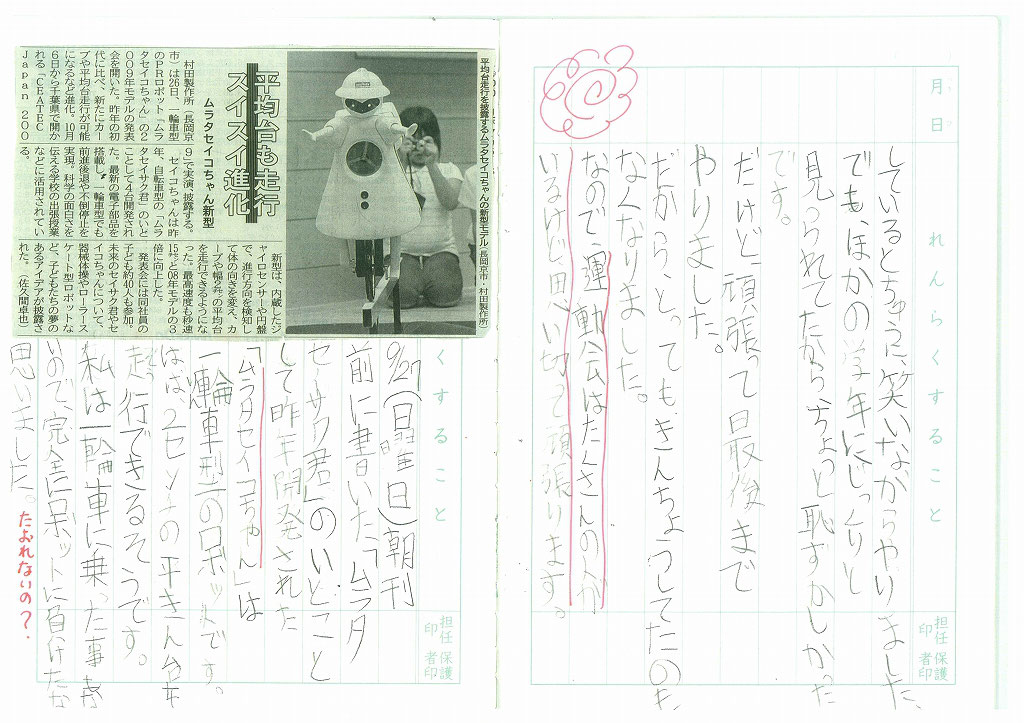 月 日
れんらくすること
しているとちゅうに、笑いながらやりました。
でもほかの学年にじっくりと
見られてたからちょっと恥ずかしかった
です。
だけど、頑張って最後まで
やりました。
だから、とってもきんちょうしてたのも、
なくなりました。
なので、運動会はたくさんの人が
いるけど思い切って頑張ります。
担任印
保護者印
平均台も走行
スイスイ進化
ムラタセイコちゃん新型
平均台走行を披露するムラタセイコちゃんの新型モデル(長岡京市・村田製作所)
村田製作所(長岡京
市)は26日、一輪車型
のPRロボット「ムラ
タセイコちゃん」の2
009年モデルの発表
会を開いた。昨年の初
代に比べ、新たにカー
ブや平均台走行が可能
になるなど進化。10月
6日から千葉県で開か
れる「CEATEC
Japan 200
9」で実演、披露する。
セイコちゃんは昨
年、自転車型の「ムラ
タセイサク君」のいと
ことして4台開発され
た。最新の電子部品を
搭載し、一輪車型でも
前進後退や不倒停止を
実現。科学の面白さを
伝える学校の出張授業
などに活用されてい
る。
新型は、内蔵したジ
ャイロセンサーや円盤
で、進行方向を検知し
て体の向きを変え、カ
ーブや幅2㌢の平均台
を走行できるようにな
った。最高速度も秒速
15㌢と08年モデルの3
倍に向上した。
発表会には同社員の
子ども約40人も参加。
未来のセイサク君やセ
イコちゃんについて、
器械体操やローラース
ケート型ロボットな
ど、子どもたちの夢の
あるアイデアが披露さ
れた。(佐久間卓也)
くすること
9/27(日曜日)朝刊
前に書いた「ムラタ
セイサク君」のいとこと
して昨年開発された
「ムラタセイコちゃん」は
一輪車型のロボットです。
はば2センチの平きん台を
走行できるそうです。
私は一輪車に乗った事が
いので、完全にロボットに負けたな
思いました。
たおれないの?
担任印
保護者印